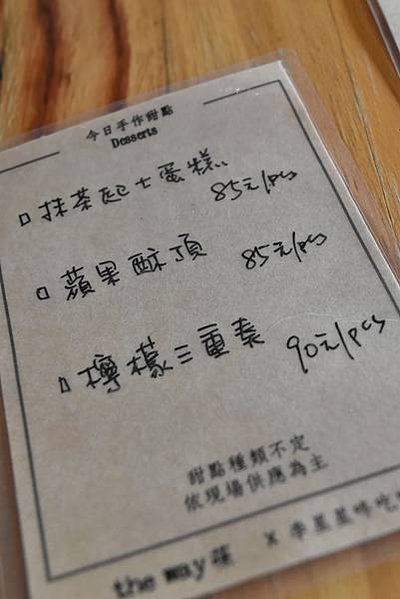 今日手作甜點
Desserts
抹茶起士蛋糕 85元/pcs
蘋果酥頂 85元/pcs
檸檬三重奏 90元/pcs
甜點種類不定
依現場供應為主
the way x 李星星